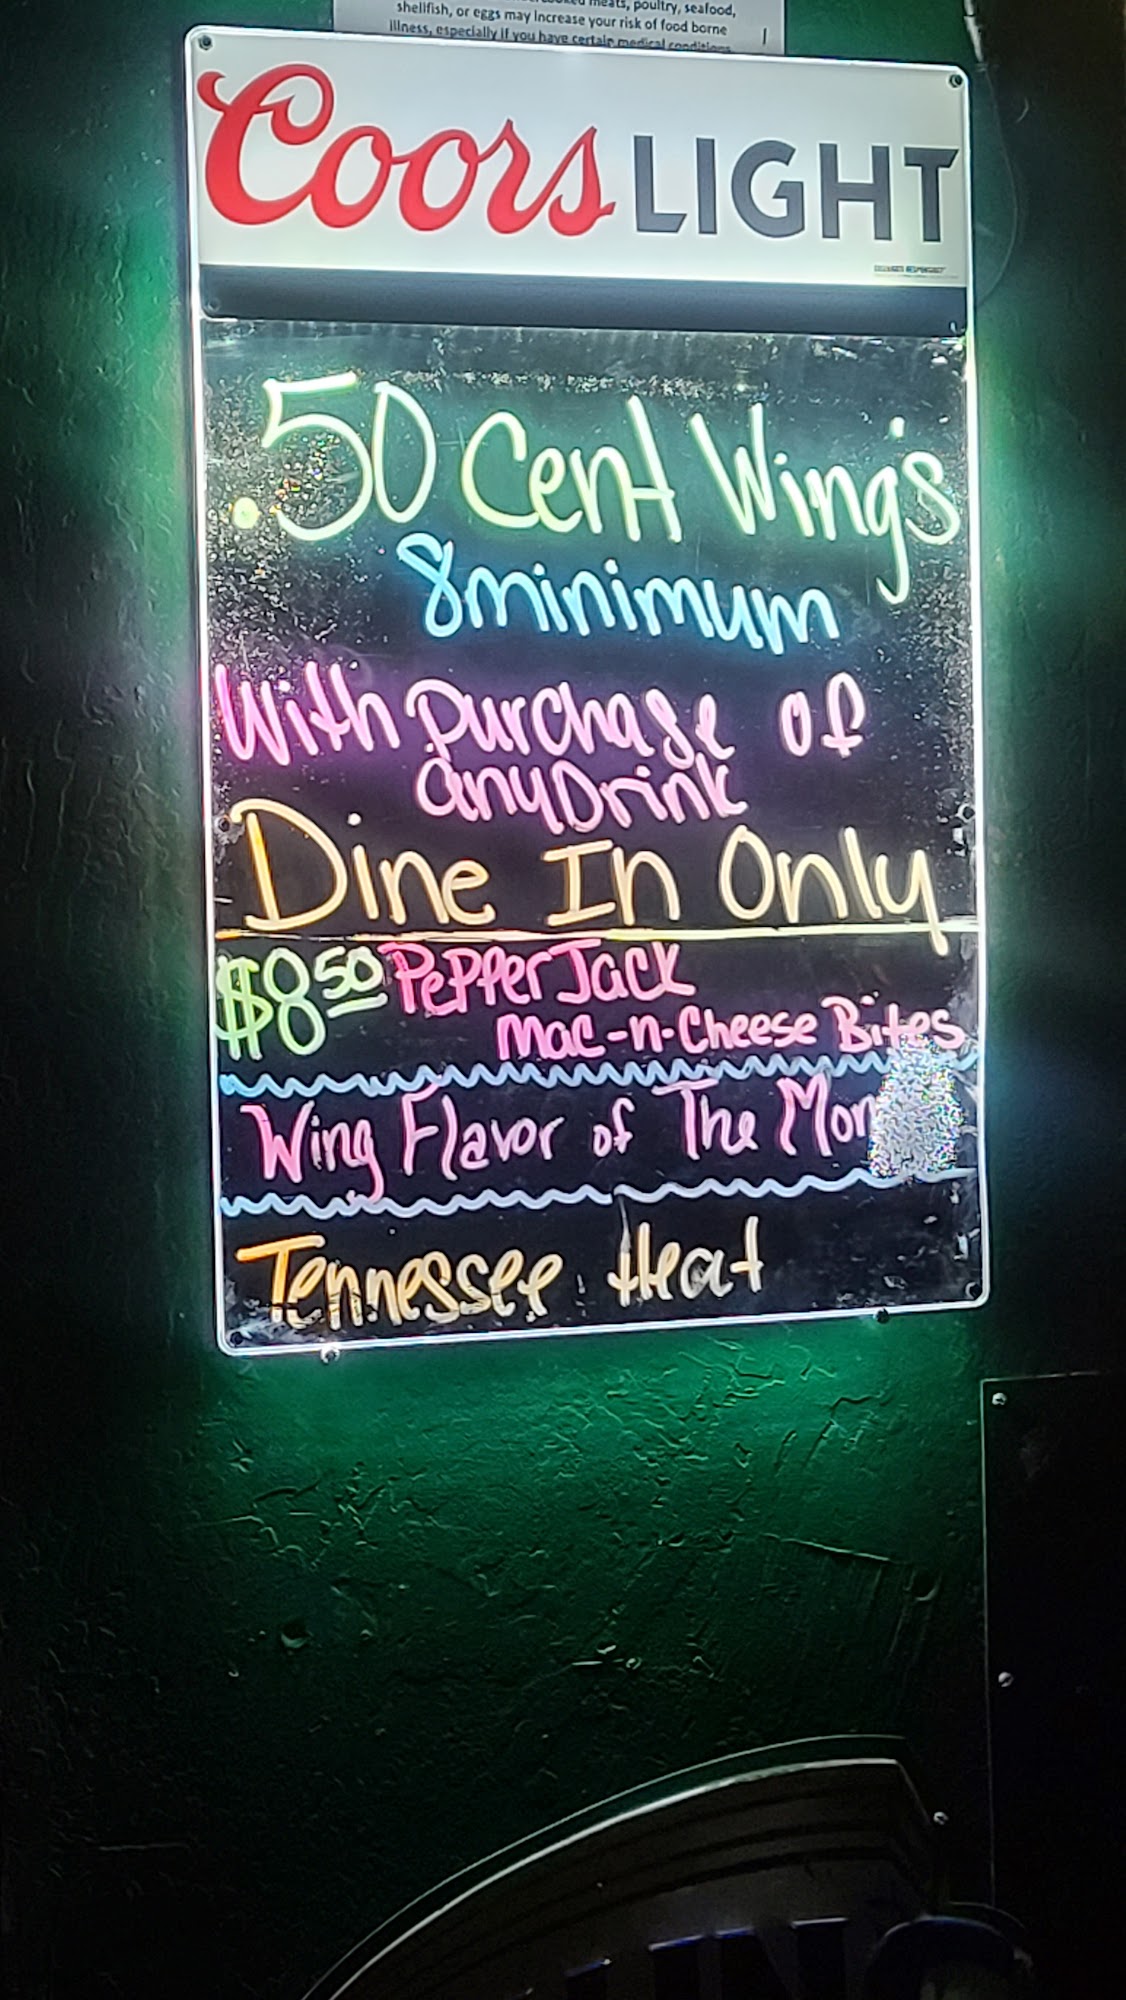 meats, poultry, seafood,
shellfish, or eggs may increase your risk of food borne
illness, especially if you have certain medical conditions.
Coors LIGHT
.50 Cent Wing's
8 minimum
With purchase of
any Drink
Dine In Only
$8.50 Pepper Jack
Mac-n-Cheese Bites
Wing Flavor of The Mon
Tennessee Heat